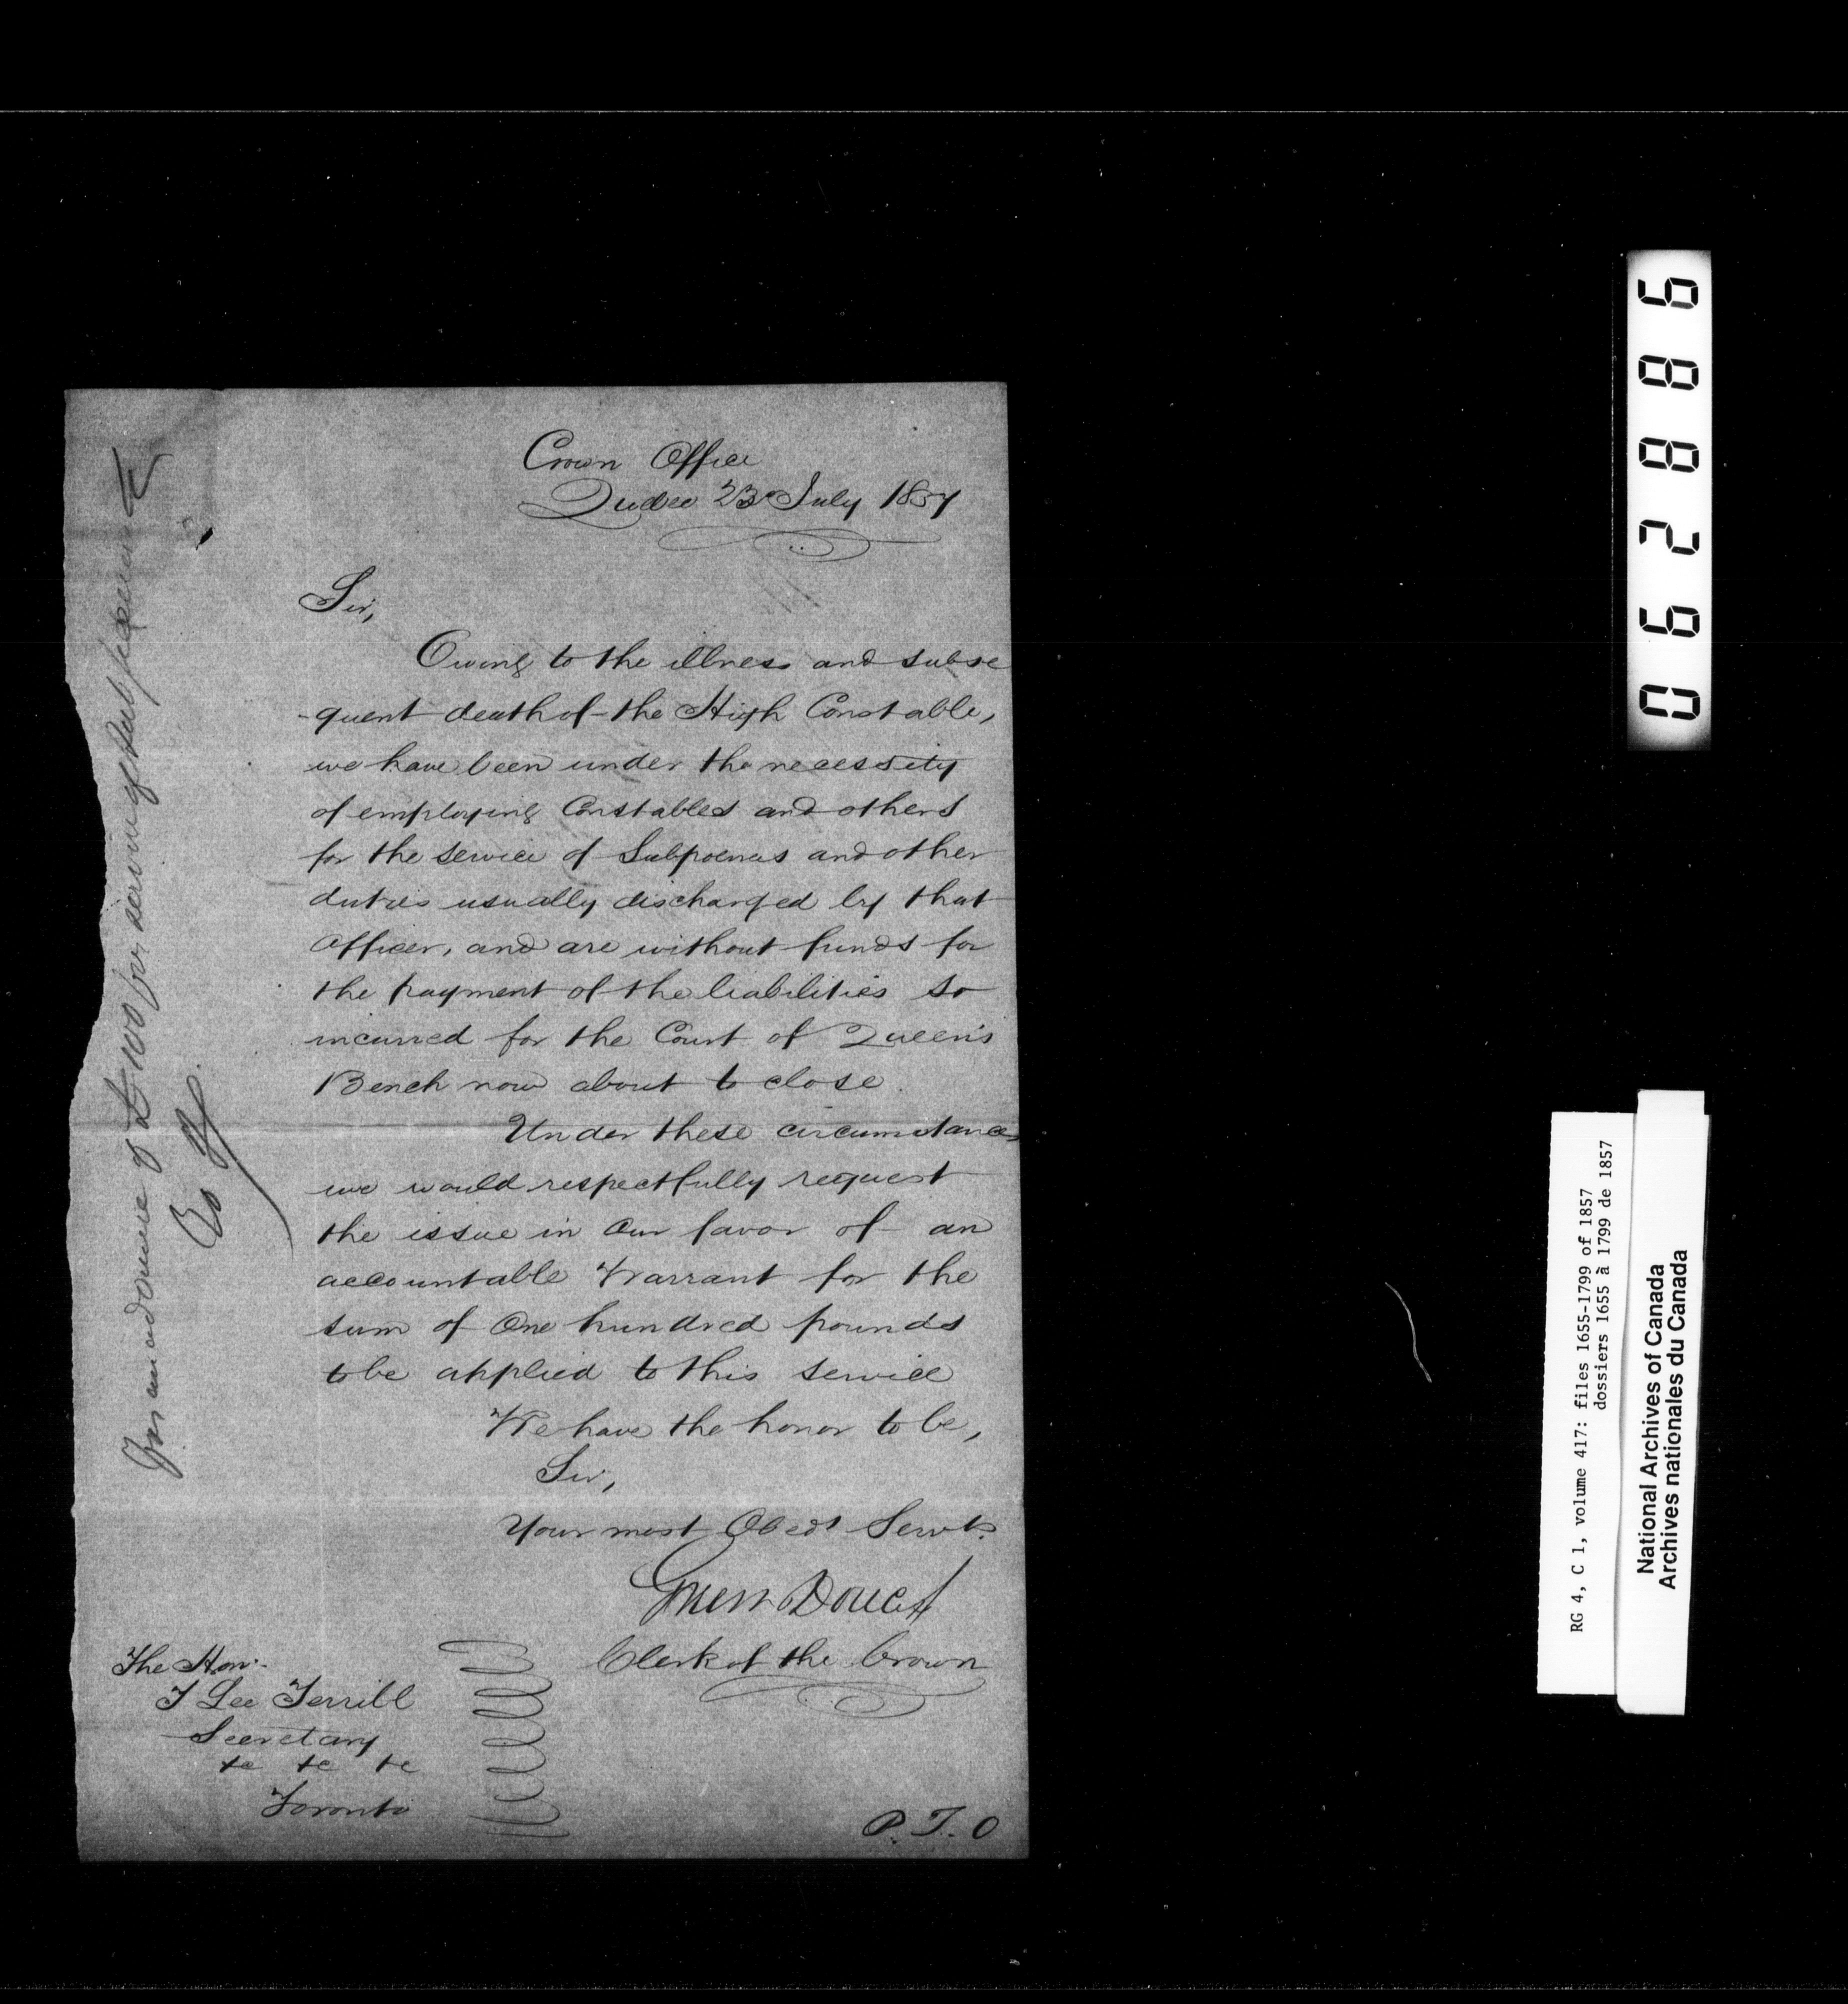 Crown Office
Quebec 23 July 1857
Sir,
Owing to the illness and subse
-quent death of the High Constable,
we have been under the necessity
of employing Constables and others
for the service of Subpoenas and other
duties usually discharged by that
Officer, and are without funds for
the payment of the liabilities so
incurred for the Court of Queen's
Bench now about to close.
Under these circumstances
we would respectfully request
the issue in our favor of an
accountable Warrant for the
sum of One hundred pounds
to be applied to this service
We have the honor to be,
Sir,
Your most Obedt Servts
Green Doucet
Clerk of the Crown
The Hon.
T Lee Terrill
Secretary
&c &c &c
Toronto
P.T.O
For an advance of £100 for serving subpoenas
062886
RG 4, C 1, volume 417: files 1655-1799 of 1857
dossiers 1655 à 1799 de 1857
National Archives of Canada
Archives nationales du Canada